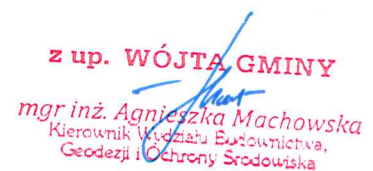 z up. WÓJTA GMINY
mgr inż. Agnieszka Machowska
Kierownik Wydziału Budownictwa,
Geodezji i Ochrony Środowiska